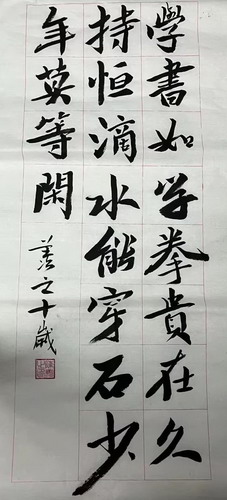 學書如学拳貴在久
持恒滴水能穿石少
年莫等閑
善之十歲